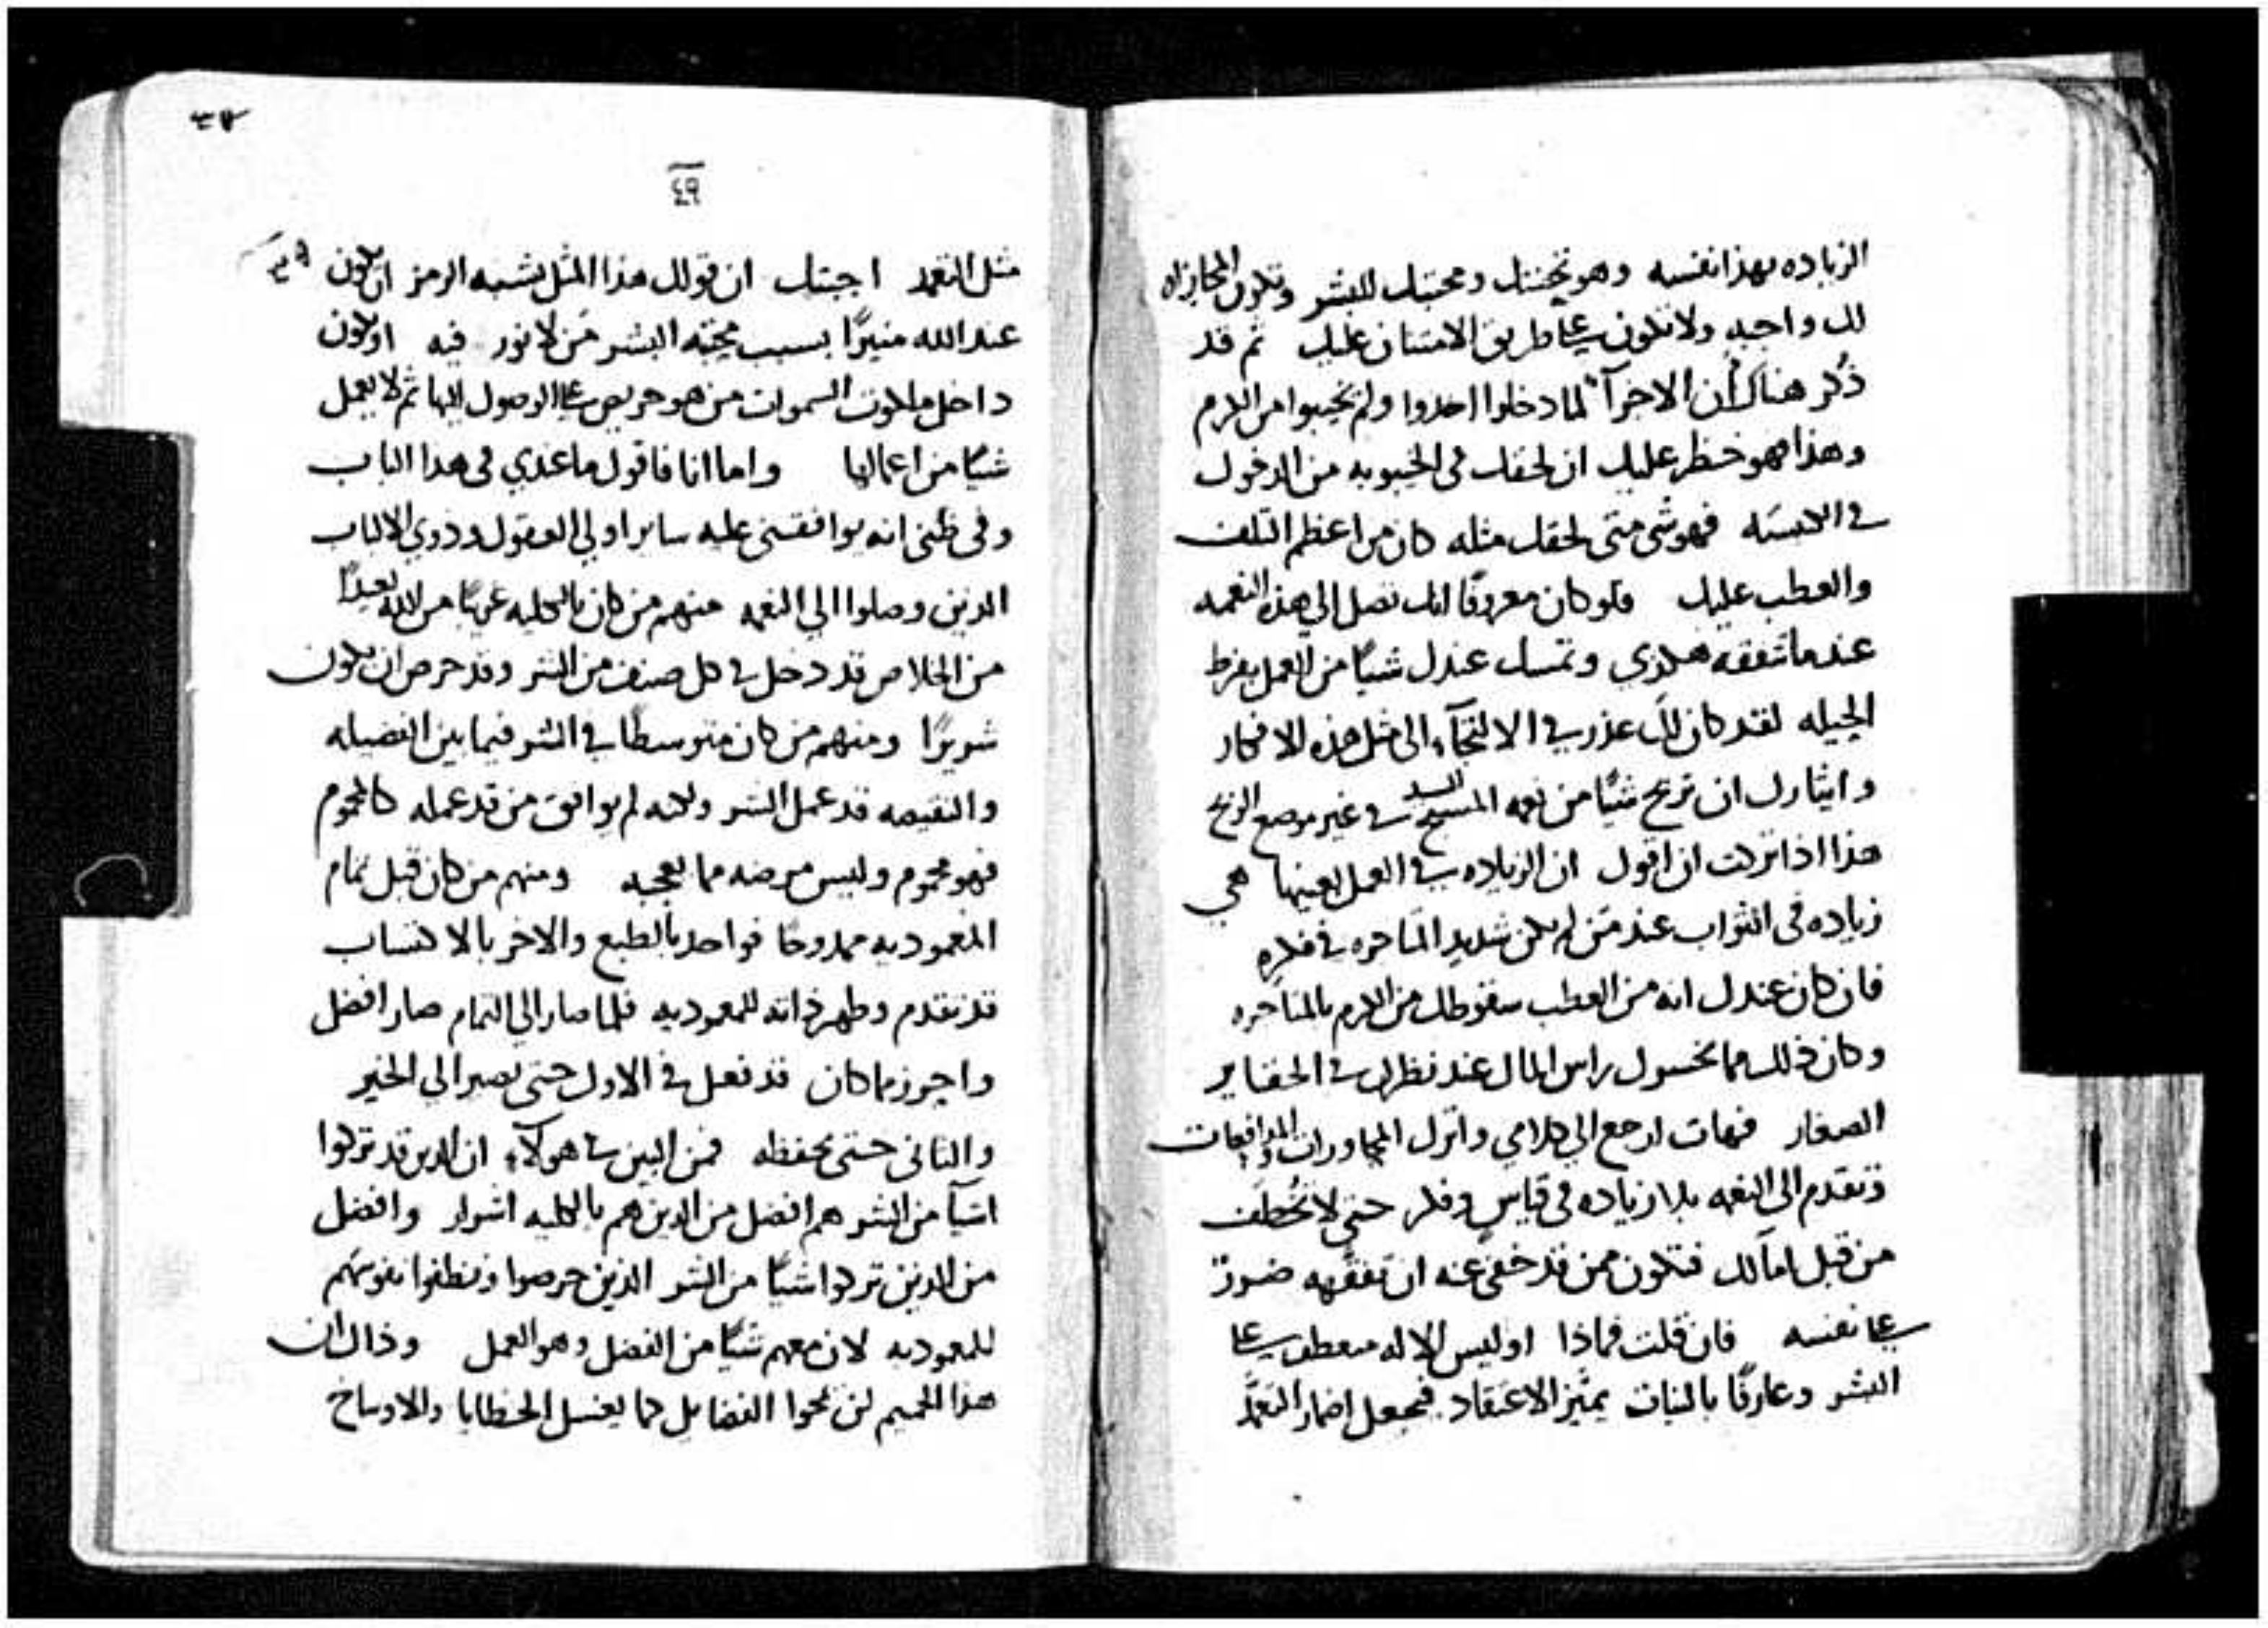 الزياده بهذا نفسه وهو تحننك ومحبتك للبشر وتكون المجازاه
لك واجبه ولا تكون على طريق الامتنان عليك ثم قد
ذُكر هناك أن الاجرآ لما دخلوا اخذوا ولم يخيبوا من الكرم
وهذا فهو خطر عليك ان لحقك في الخيبوبه من الدخول
فهو شى متى لحقك مثله كان من اعظم التلف
والعطب عليك فلو كان معروفًا انك تصل الى هذه النعمه
عند ما تتفقه هكذي وتمسك عندك شيًا من العمل بفرط
الحيله لقد كان لك عذر في الالتجآء الى مثل هذه الافكار
وايثارك ان تربح شيًا من نعمه السيد المسيح في غير موضع الربح
هذا اذا تركت ان اقول ان الزياده في العمل بعينها هي
زياده في الثواب عند مَن لم يكن شديد المتاجره في فكره
فان كان عندك انه من العطب سقوطك من الكرم بالمتاجره
وكان ذلك مما يخسرك راس المال عند نظرك في الحقاير
الصغار فهات ارجع الى كلامي واترك المجاورات والمدافعات
وتقدم الى النعمه بلا زياده في قياس وفكر حتى لا تُخطف
من قبل امالك فتكون ممن قد خفي عنه ان تفقهه ضررًا
على نفسه فان قلت فماذا اوليس الاله متعطف على
البشر وعارفًا بالنيات يميّز الاعتقاد فيجعل اضمار التعمّد
٤٩
مثل التعمد اجبتك ان قولك هذا المثل يشبه الرمز ان يكون
عند الله منيرًا بسبب محبته البشر مَن لا نور فيه او يكون
داخل ملكوت السموات من هو حريص على الوصول اليها ثم لا يعمل
شيًا من اعمالها واما انا فاقول ما عندي في هذا الباب
وفي ظني انه يوافقني عليه ساير اولي العقول وذوي الالباب
الذين وصلوا الى النعمه منهم من كان بالكليه غريبًا من الله بعيدًا
من الخلاص قد دخل في كل صنف من الشر وقد حرص ان يكون
شريرًا ومنهم من كان متوسطًا في الشر فيما بين الفضيله
والنقيصه قد عمل الشر ولكنه لم يوافق من قد عمله كالمحموم
فهو محموم وليس مرضه مما يعجبه ومنهم من كان قبل تمام
المعموديه ممدوحًا فواحد بالطبع والاخر بالاكتساب
قد تقدم وطهر ذاته للمعموديه فلما صار الى التمام صار افضل
واحرز مما كان قد فعل في الاول حتى يصير الى الخير
والثاني حتى يحفظه فمن البين في هولآء ان الذين قد تركوا
اشيآ من الشر هم افضل من الذين هم بالكليه اشرار وافضل
من الذين تركوا شيًا من الشر الذين حرصوا ونظفوا نفوسهم
للمعموديه لان معهم شيًا من الفضل وهو العمل وذاك ان
هذا الحميم لن يمحوا الفضايل كما يغسل الخطايا والاوساخ